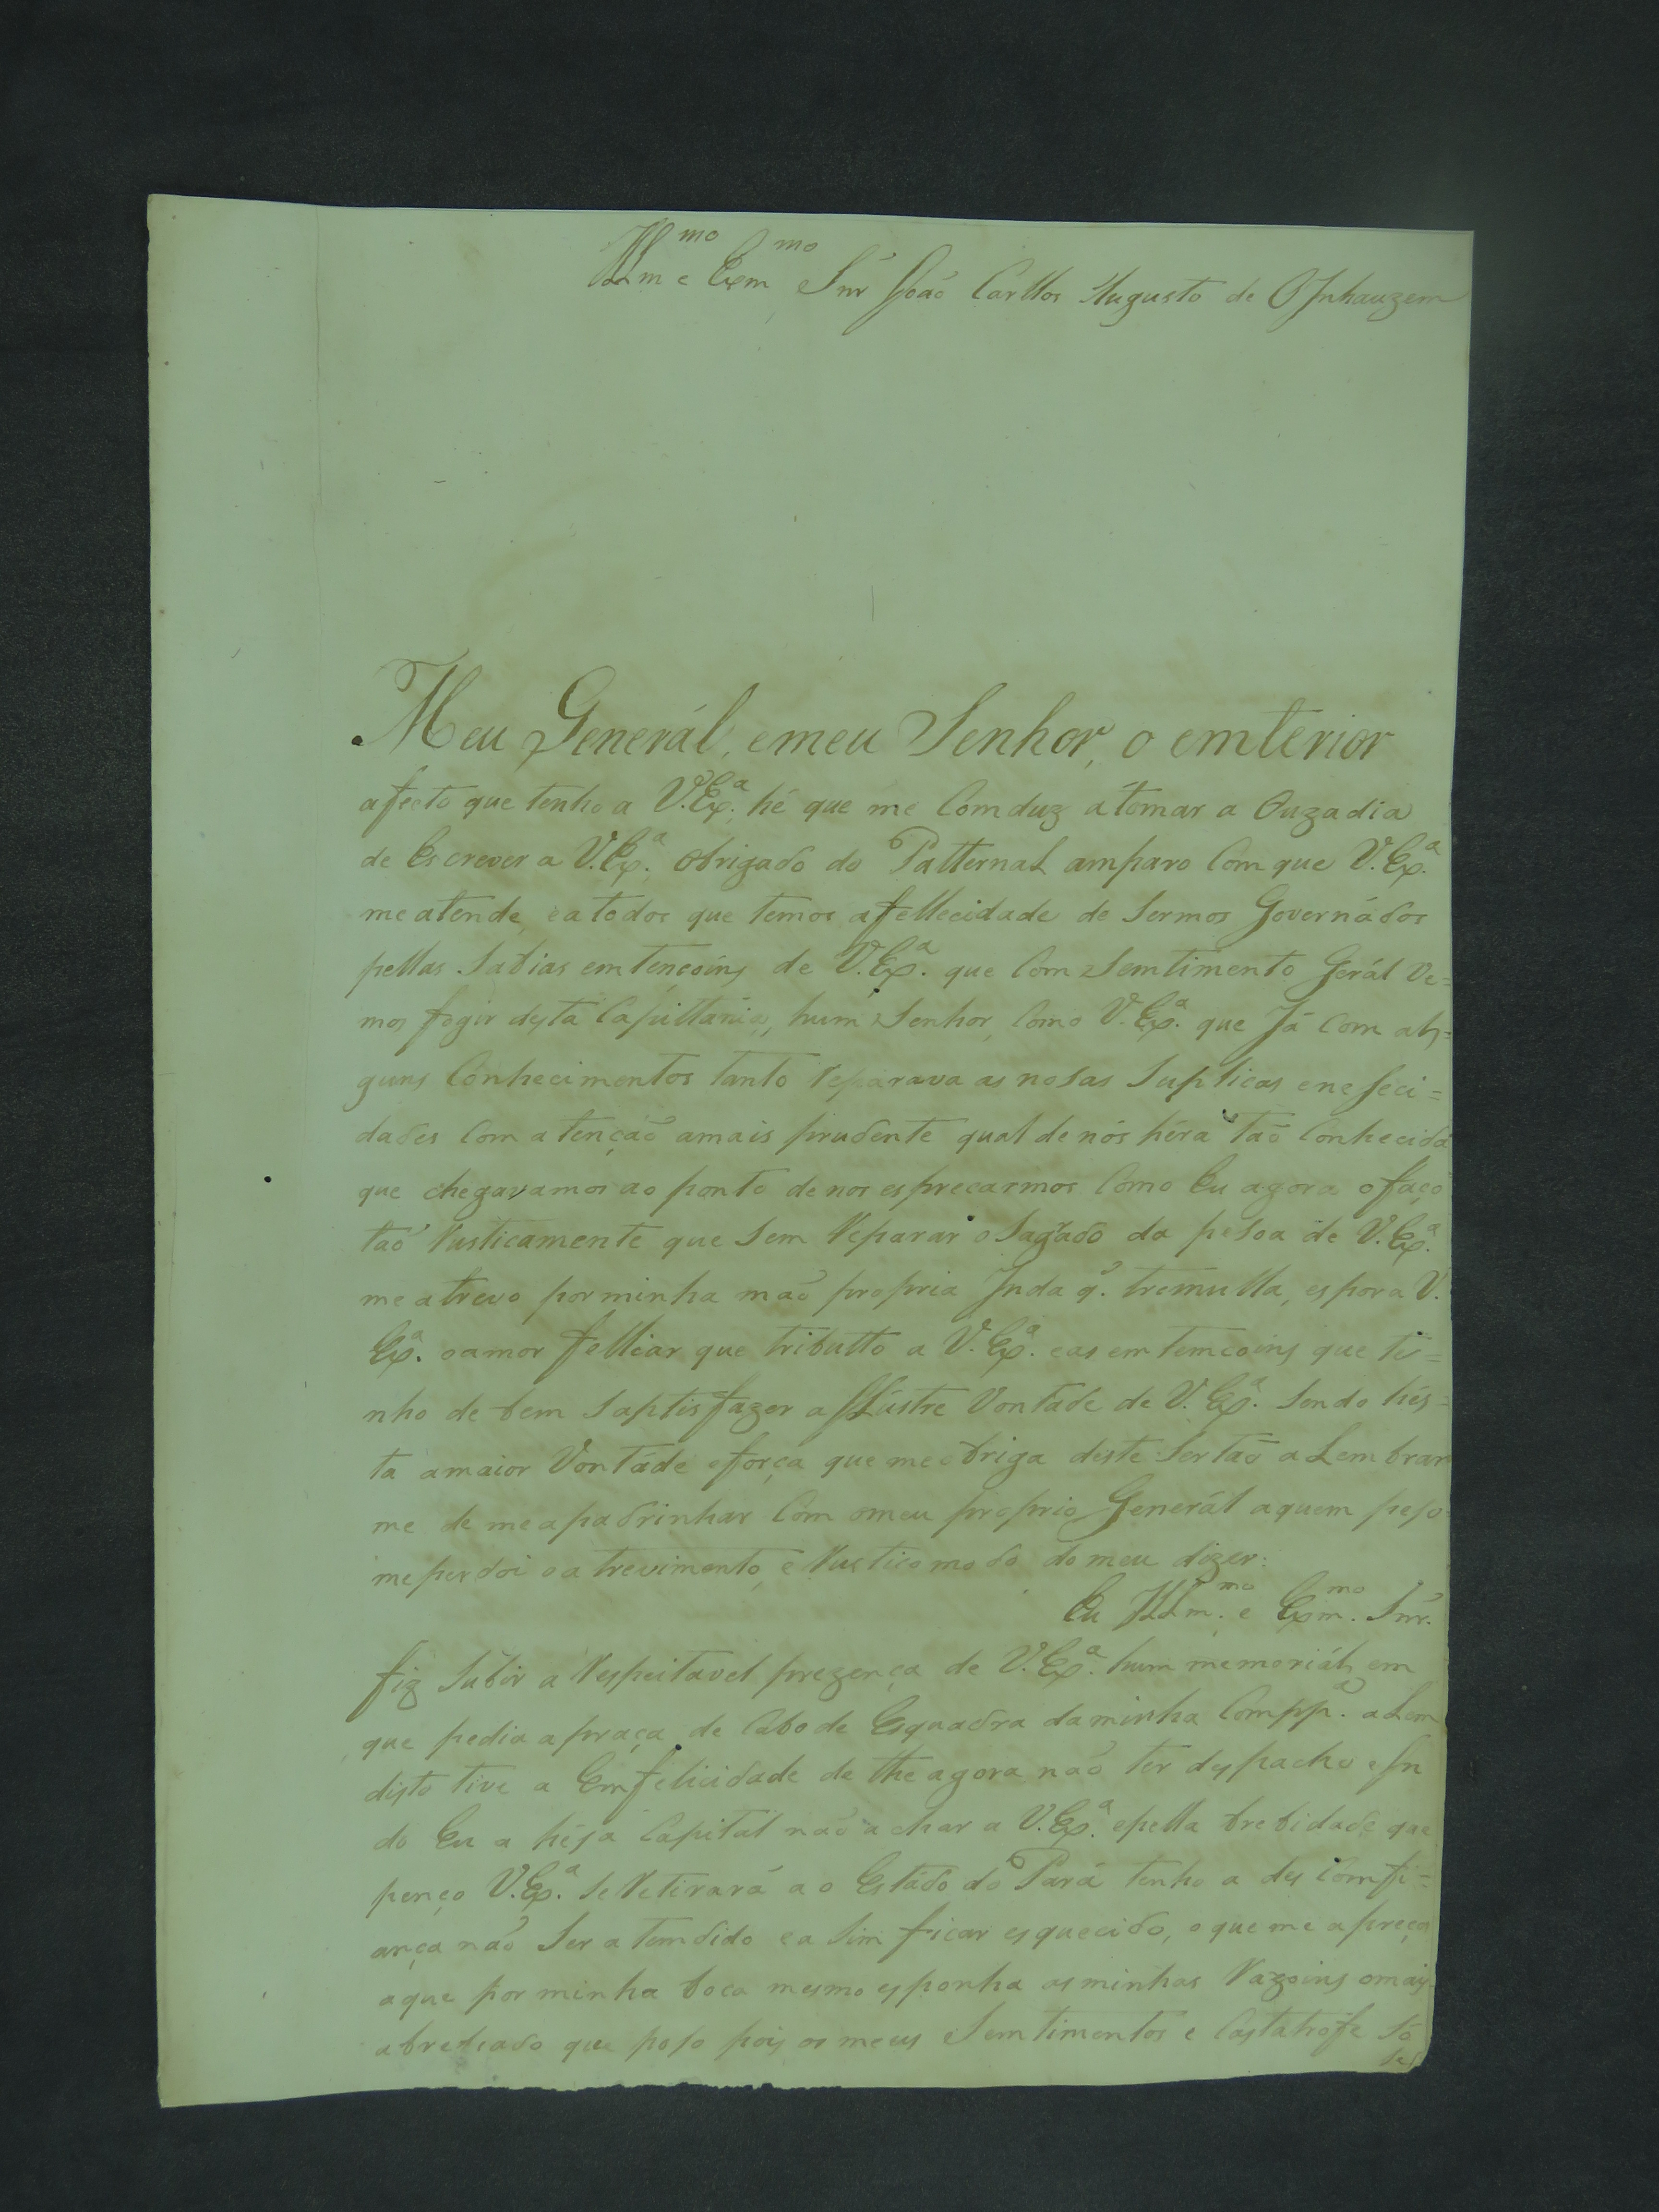 Illm.mo e Exm.mo Snr João Carllos Augusto de OInhauzem
Meu Generál, e meu Senhor, o emterior
afecto que tenho a V. Ex.a hé que me Comduz átomar a Ouzadia
de Escrever a V. Ex.a Obrigado do Patternal amparo Com que V. Ex.a
me atende, e a todos que temos a fellecidade de Sermos Governádos
pellas Sabias emtençoins de V. Ex.a que Com Semtimento Gerál ve=
mos fogir desta Capittania, hum Senhor, Como V. Ex.a que Já com al=
guns Conhecimentos tanto reparava as nosas Suplicas e neseci=
dades Com atenção amais prudente qual de nós héra tão Conhecida
que chegavamos ao ponto de nos esprecarmos Como Eu agora o faço
tão rusticamente que Sem reparar o Sagrado da pesoa de V. Ex.a
me atrevo por minha mão propria Inda q. tremulla, espor a V.
Ex.a o amor felliar que tributto a V. Ex.a e as emtemcoins que te=
nho de bem Saptisfazer a Illústre Vontade de V. Ex.a Sendo hés=
ta amaior Vontáde e força que me obriga deste Sertão a Lembrar
me de me apadrinhar Com o meu proprio Generál aquem peso
me perdoi o atrevimento, e rustico modo do meu dizer:
Eu Illm.mo e Exm.mo Snr.
fiz Subir a respeitavel prezença de V. Ex.a hum memoriál, em
que pedia a praça de Cabo de Esquadra da minha Compp.a alem
disto tive a Emfelicidade de the agora não ter despacho e In
do Eu a hésa Capital não achar a V. Ex.a e pella brebidade que
penço V. Ex.a Se retirará ao Estádo do Pará tenho a des Comfi=
ança não Ser atemdido e a Sim ficar esquecido, o que me apreça
aque por minha boca mesmo esponha as minhas razoins o mais
abreviado que poso pois os meus Semtimentos e Castatrofe Só